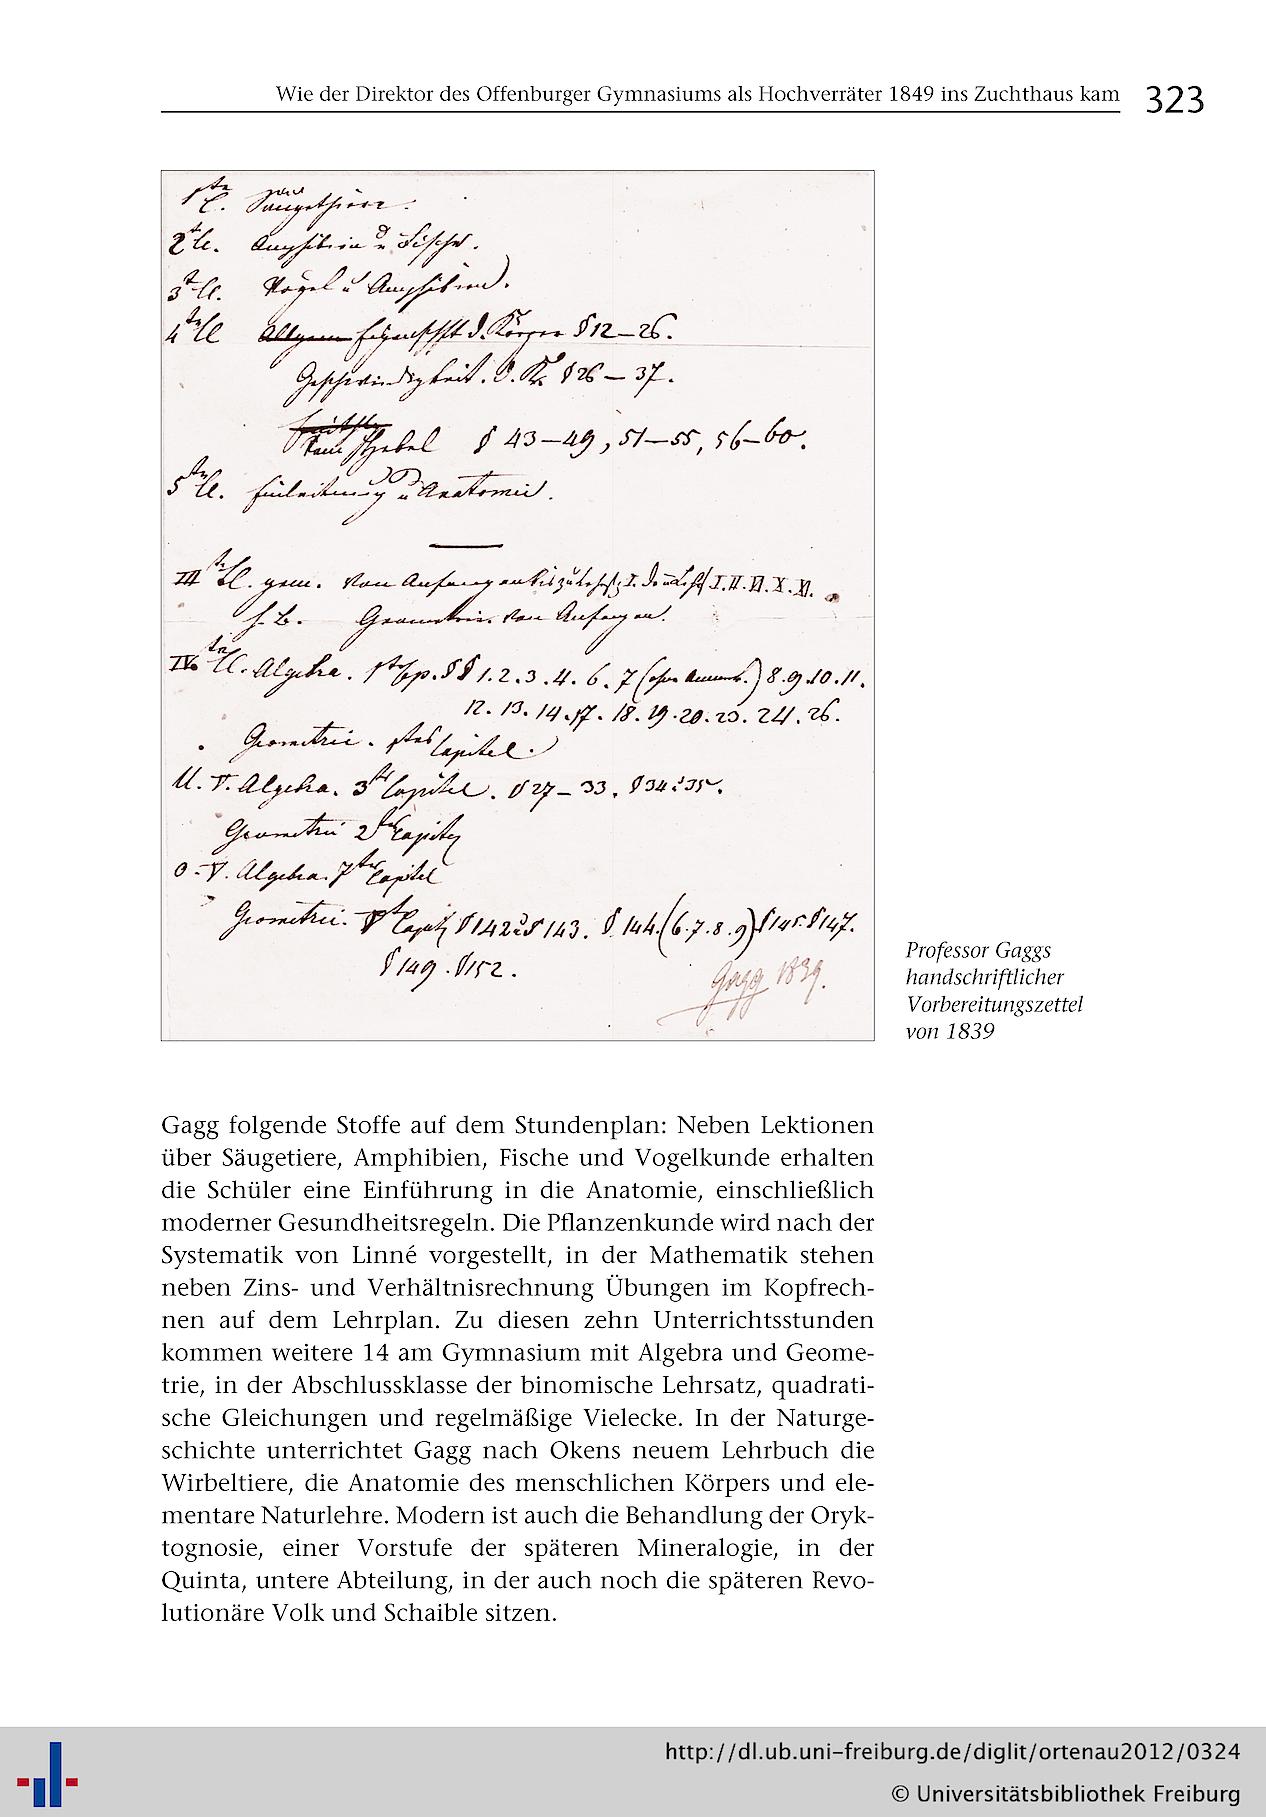 Wie der Direktor des Offenburger Gymnasiums als Hochverräter 1849 ins Zuchthaus kam 323
1te Cl. Säugethiere.
2te Cl. Amphibien u. Fische.
3te Cl. Vögel u Amphibien.
4te Cl Allgem Eigenschft d. Körper § 12–26.
Geschwindigkeit. d. K. § 26 – 37.
Hebel § 43–49, 51–55, 56–60.
5te Cl. Einleitung u Anatomie.
III te Cl. gem. Von Anfang an bis I. I. II. VI. X. XI.
Geometrie von Anfang an.
IV. te Cl. Algebra. 1te §§ 1. 2. 3. 4. 6. 7 ( ) 8. 9. 10. 11.
12. 13. 14. 17. 18. 19. 20. 23. 24. 26.
Geometrie. 1tes Capitel.
U. V. Algebra. 3tes Capitel. § 27 – 33. § 34 35.
Geometrie 2tes Capitel
O. V. Algebra. 7tes Capitel
Geometrie. Capitel § 142 § 143. § 144. (6. 7. 8. 9) § 145. § 147.
§ 149. § 152.
Gagg 1839.
Professor Gaggs
handschriftlicher
Vorbereitungszettel
von 1839
Gagg folgende Stoffe auf dem Stundenplan: Neben Lektionen
über Säugetiere, Amphibien, Fische und Vogelkunde erhalten
die Schüler eine Einführung in die Anatomie, einschließlich
moderner Gesundheitsregeln. Die Pflanzenkunde wird nach der
Systematik von Linné vorgestellt, in der Mathematik stehen
neben Zins- und Verhältnisrechnung Übungen im Kopfrech-
nen auf dem Lehrplan. Zu diesen zehn Unterrichtsstunden
kommen weitere 14 am Gymnasium mit Algebra und Geome-
trie, in der Abschlussklasse der binomische Lehrsatz, quadrati-
sche Gleichungen und regelmäßige Vielecke. In der Naturge-
schichte unterrichtet Gagg nach Okens neuem Lehrbuch die
Wirbeltiere, die Anatomie des menschlichen Körpers und ele-
mentare Naturlehre. Modern ist auch die Behandlung der Oryk-
tognosie, einer Vorstufe der späteren Mineralogie, in der
Quinta, untere Abteilung, in der auch noch die späteren Revo-
lutionäre Volk und Schaible sitzen.
http://dl.ub.uni-freiburg.de/diglit/ortenau2012/0324
© Universitätsbibliothek Freiburg